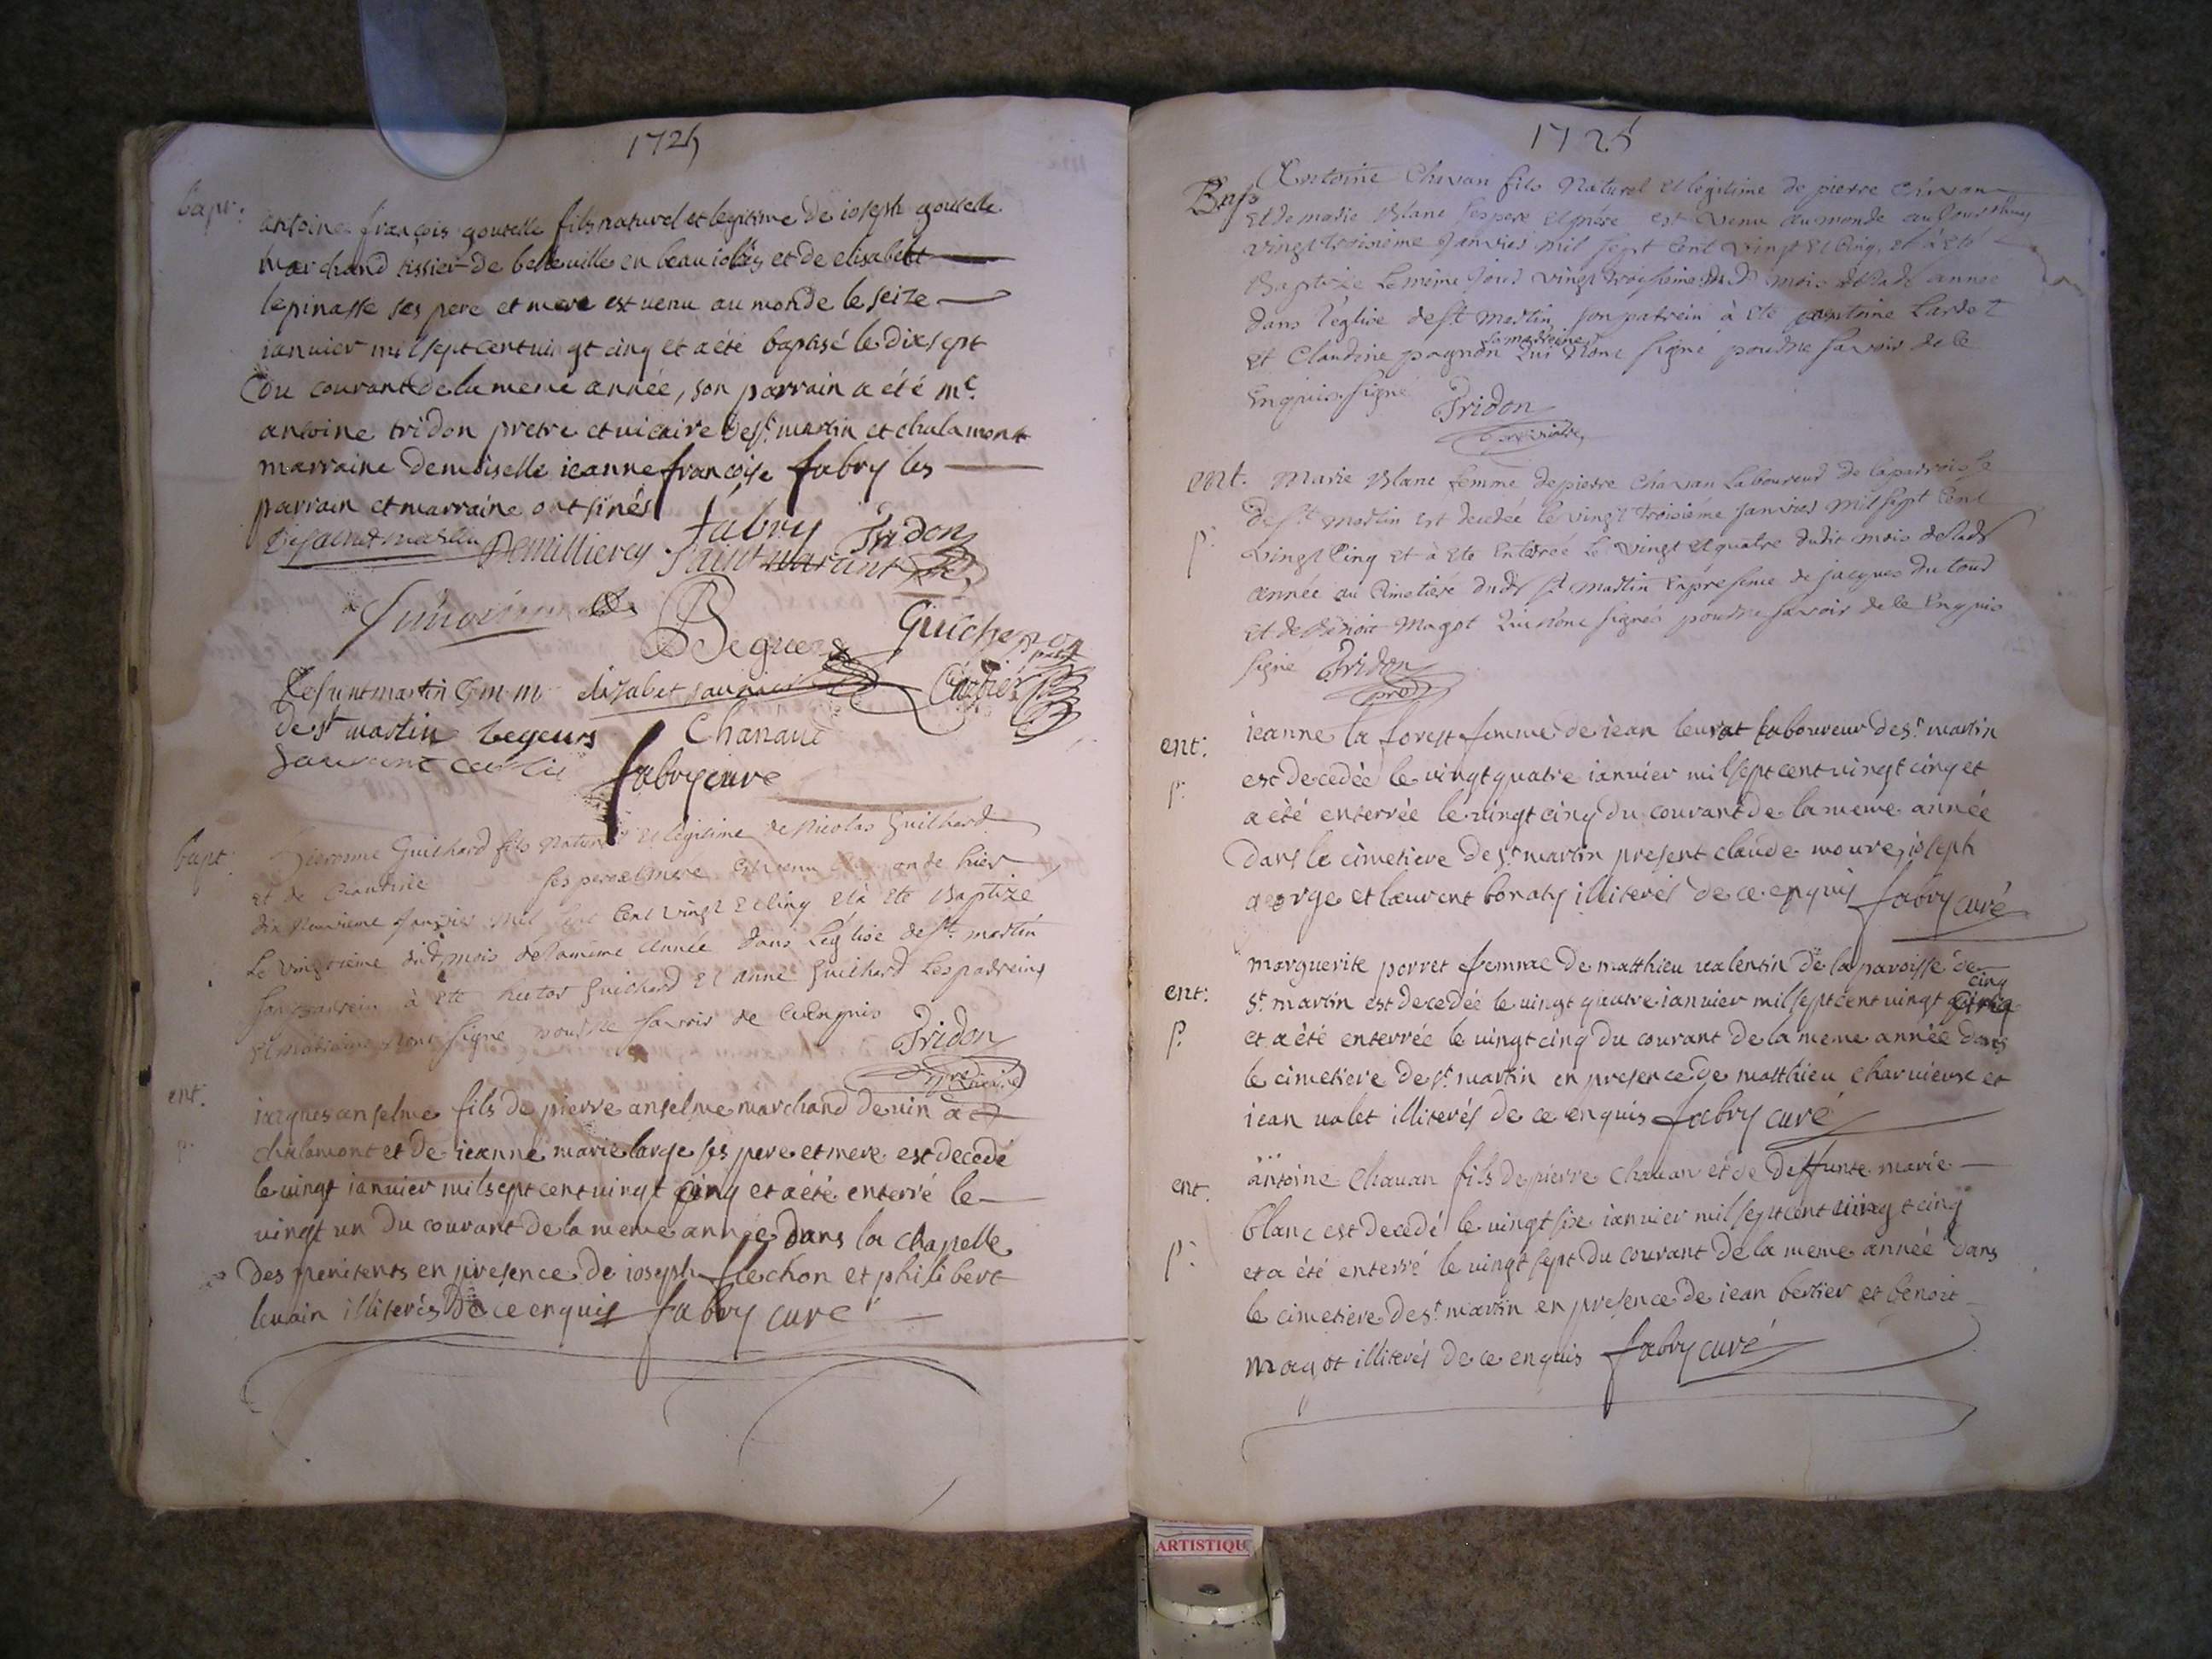 1725
bapt:
antoine françois goutelle fils naturel et legitime de ioseph goutelle
marchand tissier de belleville en beauiolois et de elisabett
lepinasse ses pere et mere est uenu au monde le seize
ianuier mil sept cent uingt cinq et a été baptisé le dixsept
du courant de la meme année, son parrain a été mre.
antoine tridon pretre et uicaire de st. martin et chalamont
marraine demoiselle ieanne françoise fabry les
parrain et marraine ont sinés
fabry Tridon
Desaint martin Demillierey Saint martin
Beguers Guichenon
elisabet
de st martin begeurs Chanaud
fabry cure
bapt:
Guichard fils naturel et légitime de Nicolas Guichard
et de Claudine ses pere et mere est venu au monde hier
dix neuvieme janvier mil sept Cent vingt et Cinq et à été Baptize
Le vingtieme dud. mois de la même année dans L'église de st. martin
son parrein à été hector Guichard et anne Guichard Les parreins
et mareinne n'ont signé pour ne savoir de ce enquis
Tridon
pre. vicaire
ent:
p.
iacques anselme fils de pierre anselme marchand de uin à
chalamont et de ieanne marie large ses pere et mere est decedé
le uingt ianuier mil sept cent uingt cinq et a été enterré le
uingt un du courant de la meme année dans la chapelle
des penitents en presence de ioseph flechon et philibert
leuain illiterés de ce enquis fabry curé
1725
Bap
Antoine Chavan fils Naturel et légitime de pierre Chavan
et de marie Blanc ses pere et mere est venu au monde aujourdhuy
vingt troisième janvier mil sept Cent vingt et Cinq, et à été
Baptize le même jour vingt troisieme dud. mois de lad. année
dans l'église de st. martin son patrein à été antoine Lardet
et Claudine pagnon sa marreine qui n'ont signé pour ne savoir de ce
Enquis. signé
Tridon
pre. vicaire
ent.
p.
Marie Blanc femme de pierre Chavan Laboureur de la parroisse
de st. martin est decedée le vingt troisiéme janvier mil sept Cent
vingt Cinq et à été Enterrée le vingt et quatre dudit mois de lad.
année au Cimetiére dud. st. martin En presence de jacques Dutour
et de Benoit Magot qui n'ont signés pour ne savoir de ce Enquis
signé Tridon
pre.
ent:
p.
ieanne la forest femme de iean leurat laboureur de st. martin
est decedée le uingt quatre ianuier mil sept cent uingt cinq et
a été enterrée le uingt cinq du courant de la meme année
dans le cimetiere de st. martin present claude moure, ioseph
george et laurent bonaty illiterés de ce enquis fabry curé
ent:
p.
marguerite porret femme de matthieu ualentin de la paroisse de
st. martin est decedée le uingt quatre ianuier mil sept cent uingt cinq
et a été enterrée le uingt cinq du courant de la meme année dans
le cimetiere de st. martin en presence de matthieu charuieux et
iean ualet illiterés de ce enquis fabry curé
ent.
p.
antoine Chauan fils de pierre Chauan et de deffunte marie
blanc est decedé le uingt six ianuier mil sept cent uingt cinq
et a été enterré le uingt sept du courant de la meme année dans
le cimetiere de st. martin en presence de iean bertier et benoit
magot illiterés de ce enquis fabry curé
ARTISTIQU